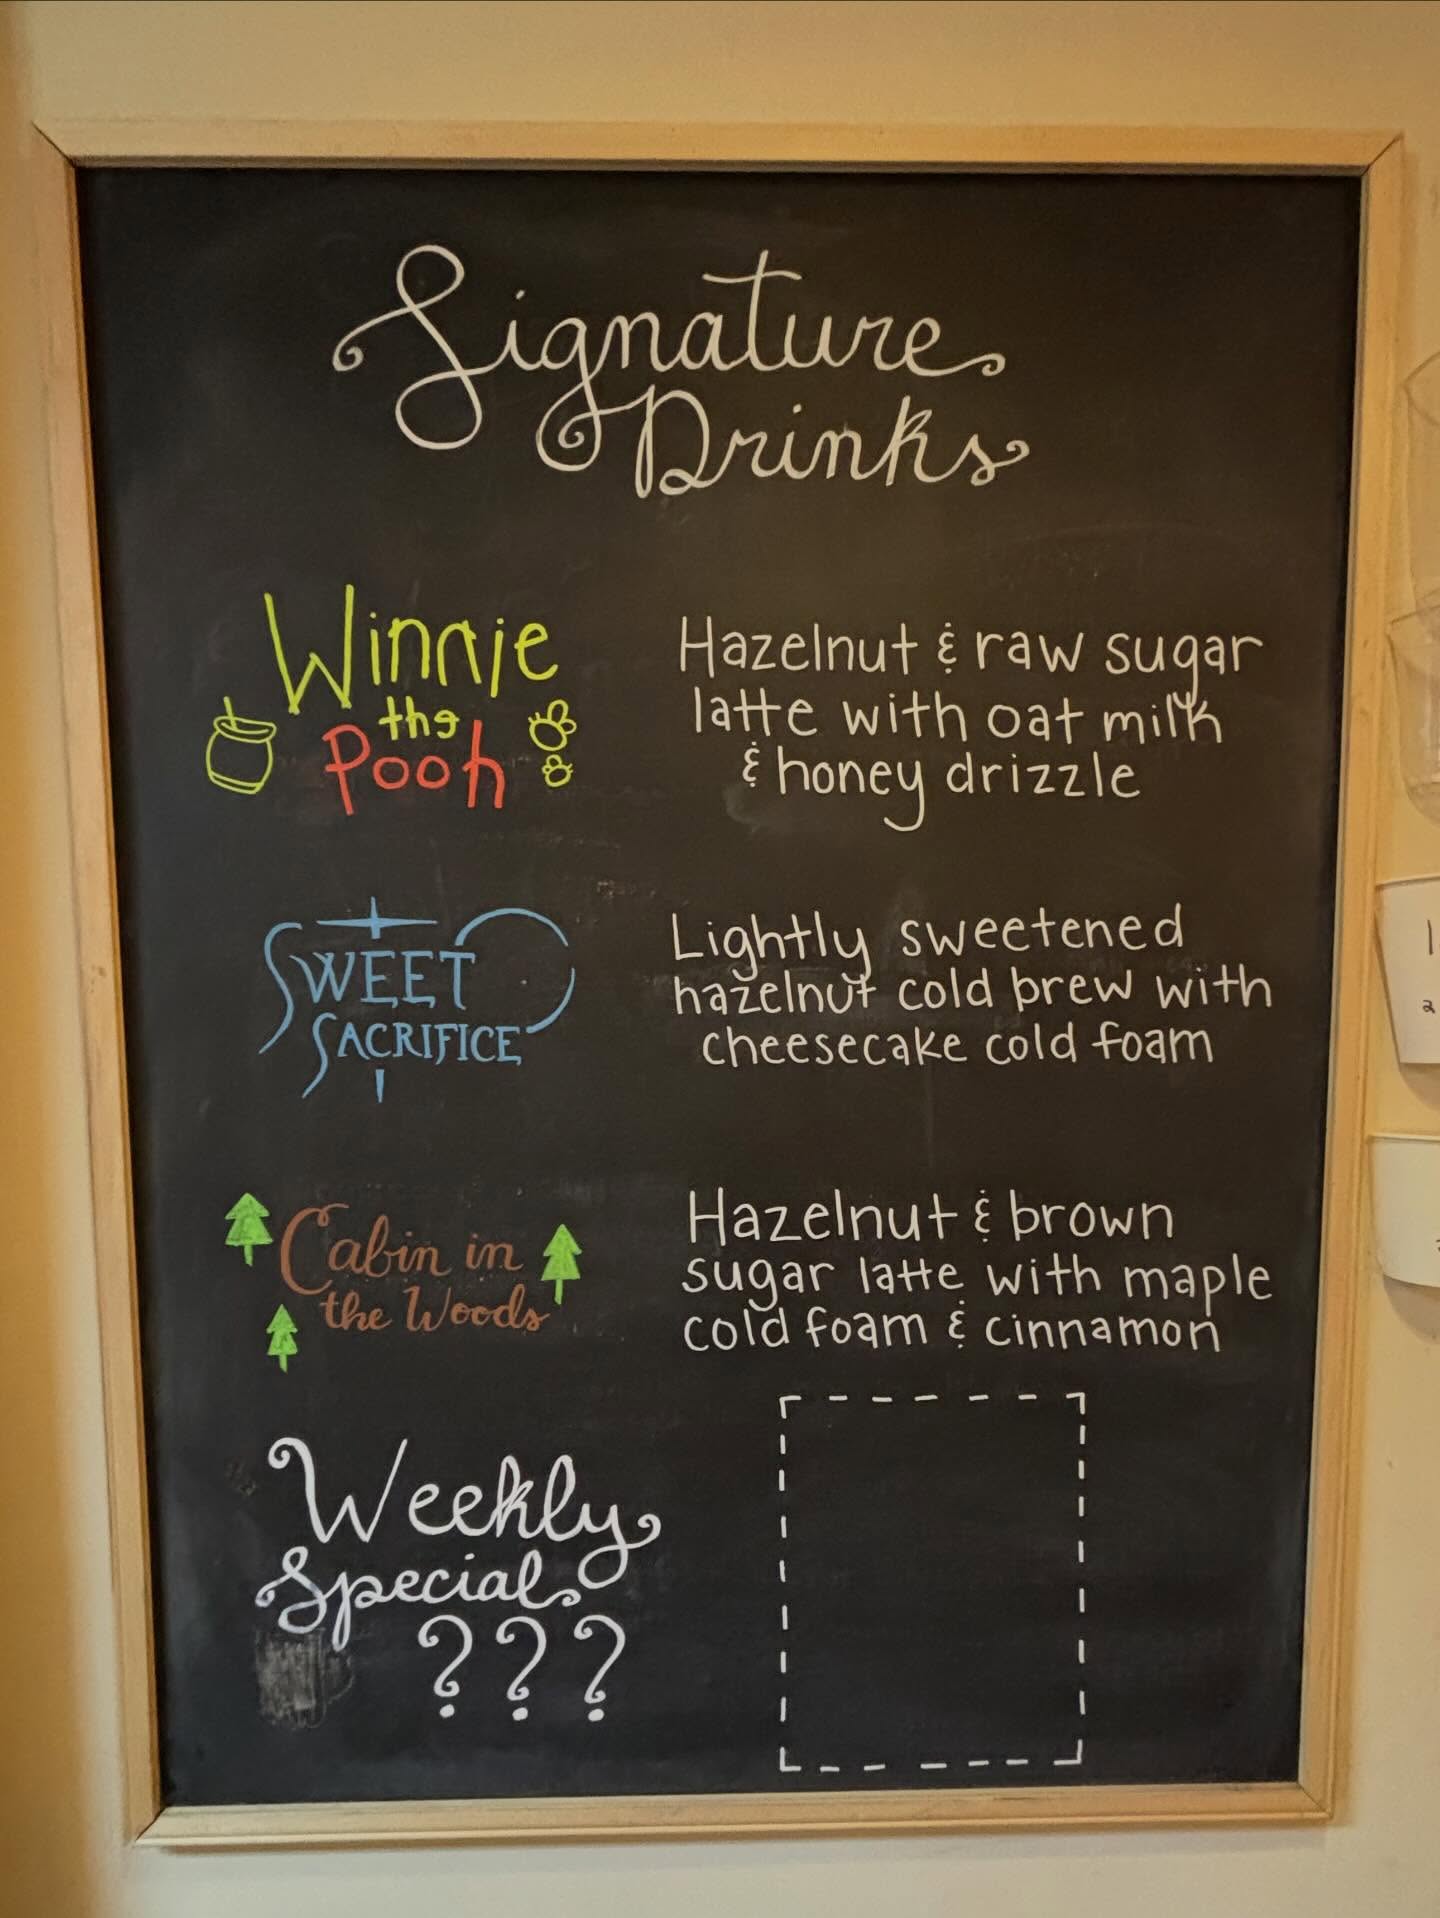 Signature
Drinks
Winnie
the
Pooh
Hazelnut & raw sugar
latte with oat milk
& honey drizzle
SWEET
SACRIFICE
Lightly sweetened
hazelnut cold brew with
cheesecake cold foam
Cabin in
the Woods
Hazelnut & brown
sugar latte with maple
cold foam & cinnamon
Weekly
Special
???
1
2